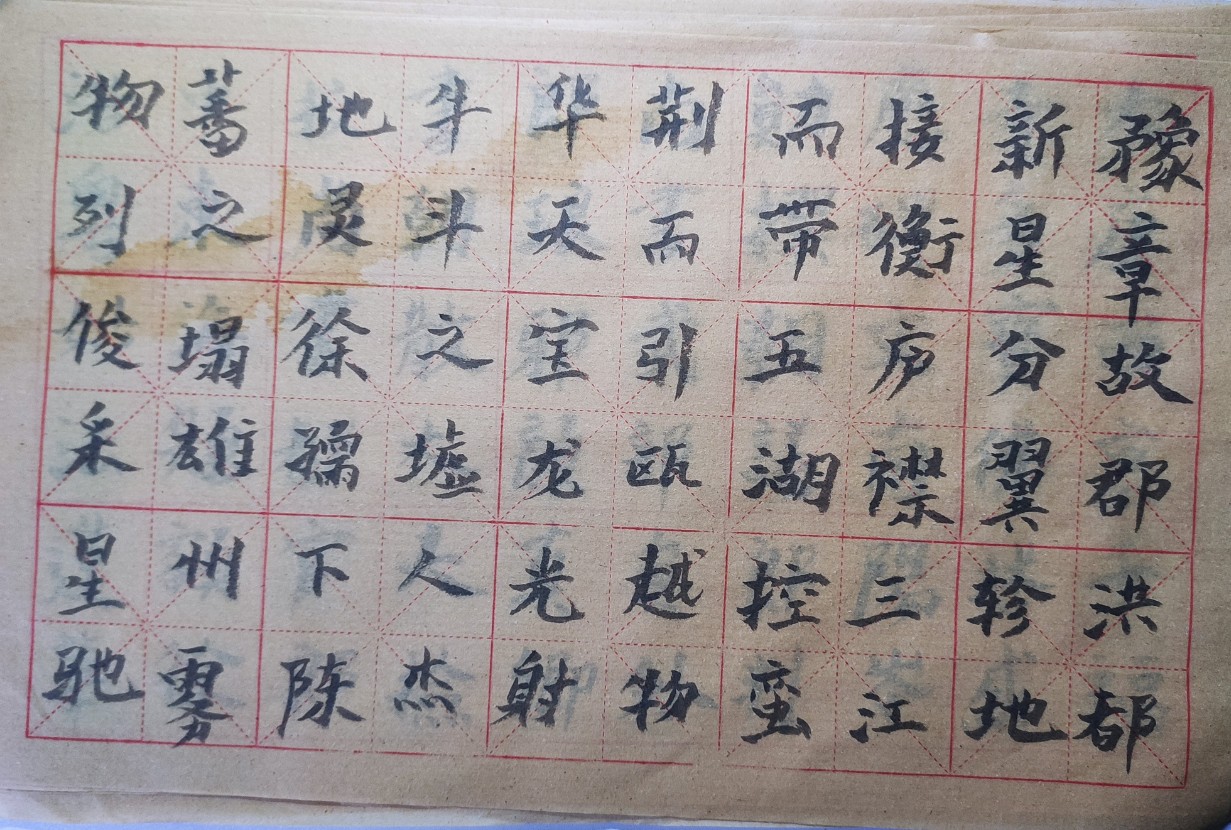 豫章故郡洪都
新星分翼轸地
接衡庐襟三江
而带五湖控蛮
荆而引瓯越物
华天宝龙光射
牛斗之墟人杰
地灵徐孺下陈
蕃之塌雄州雾
物列俊采星驰